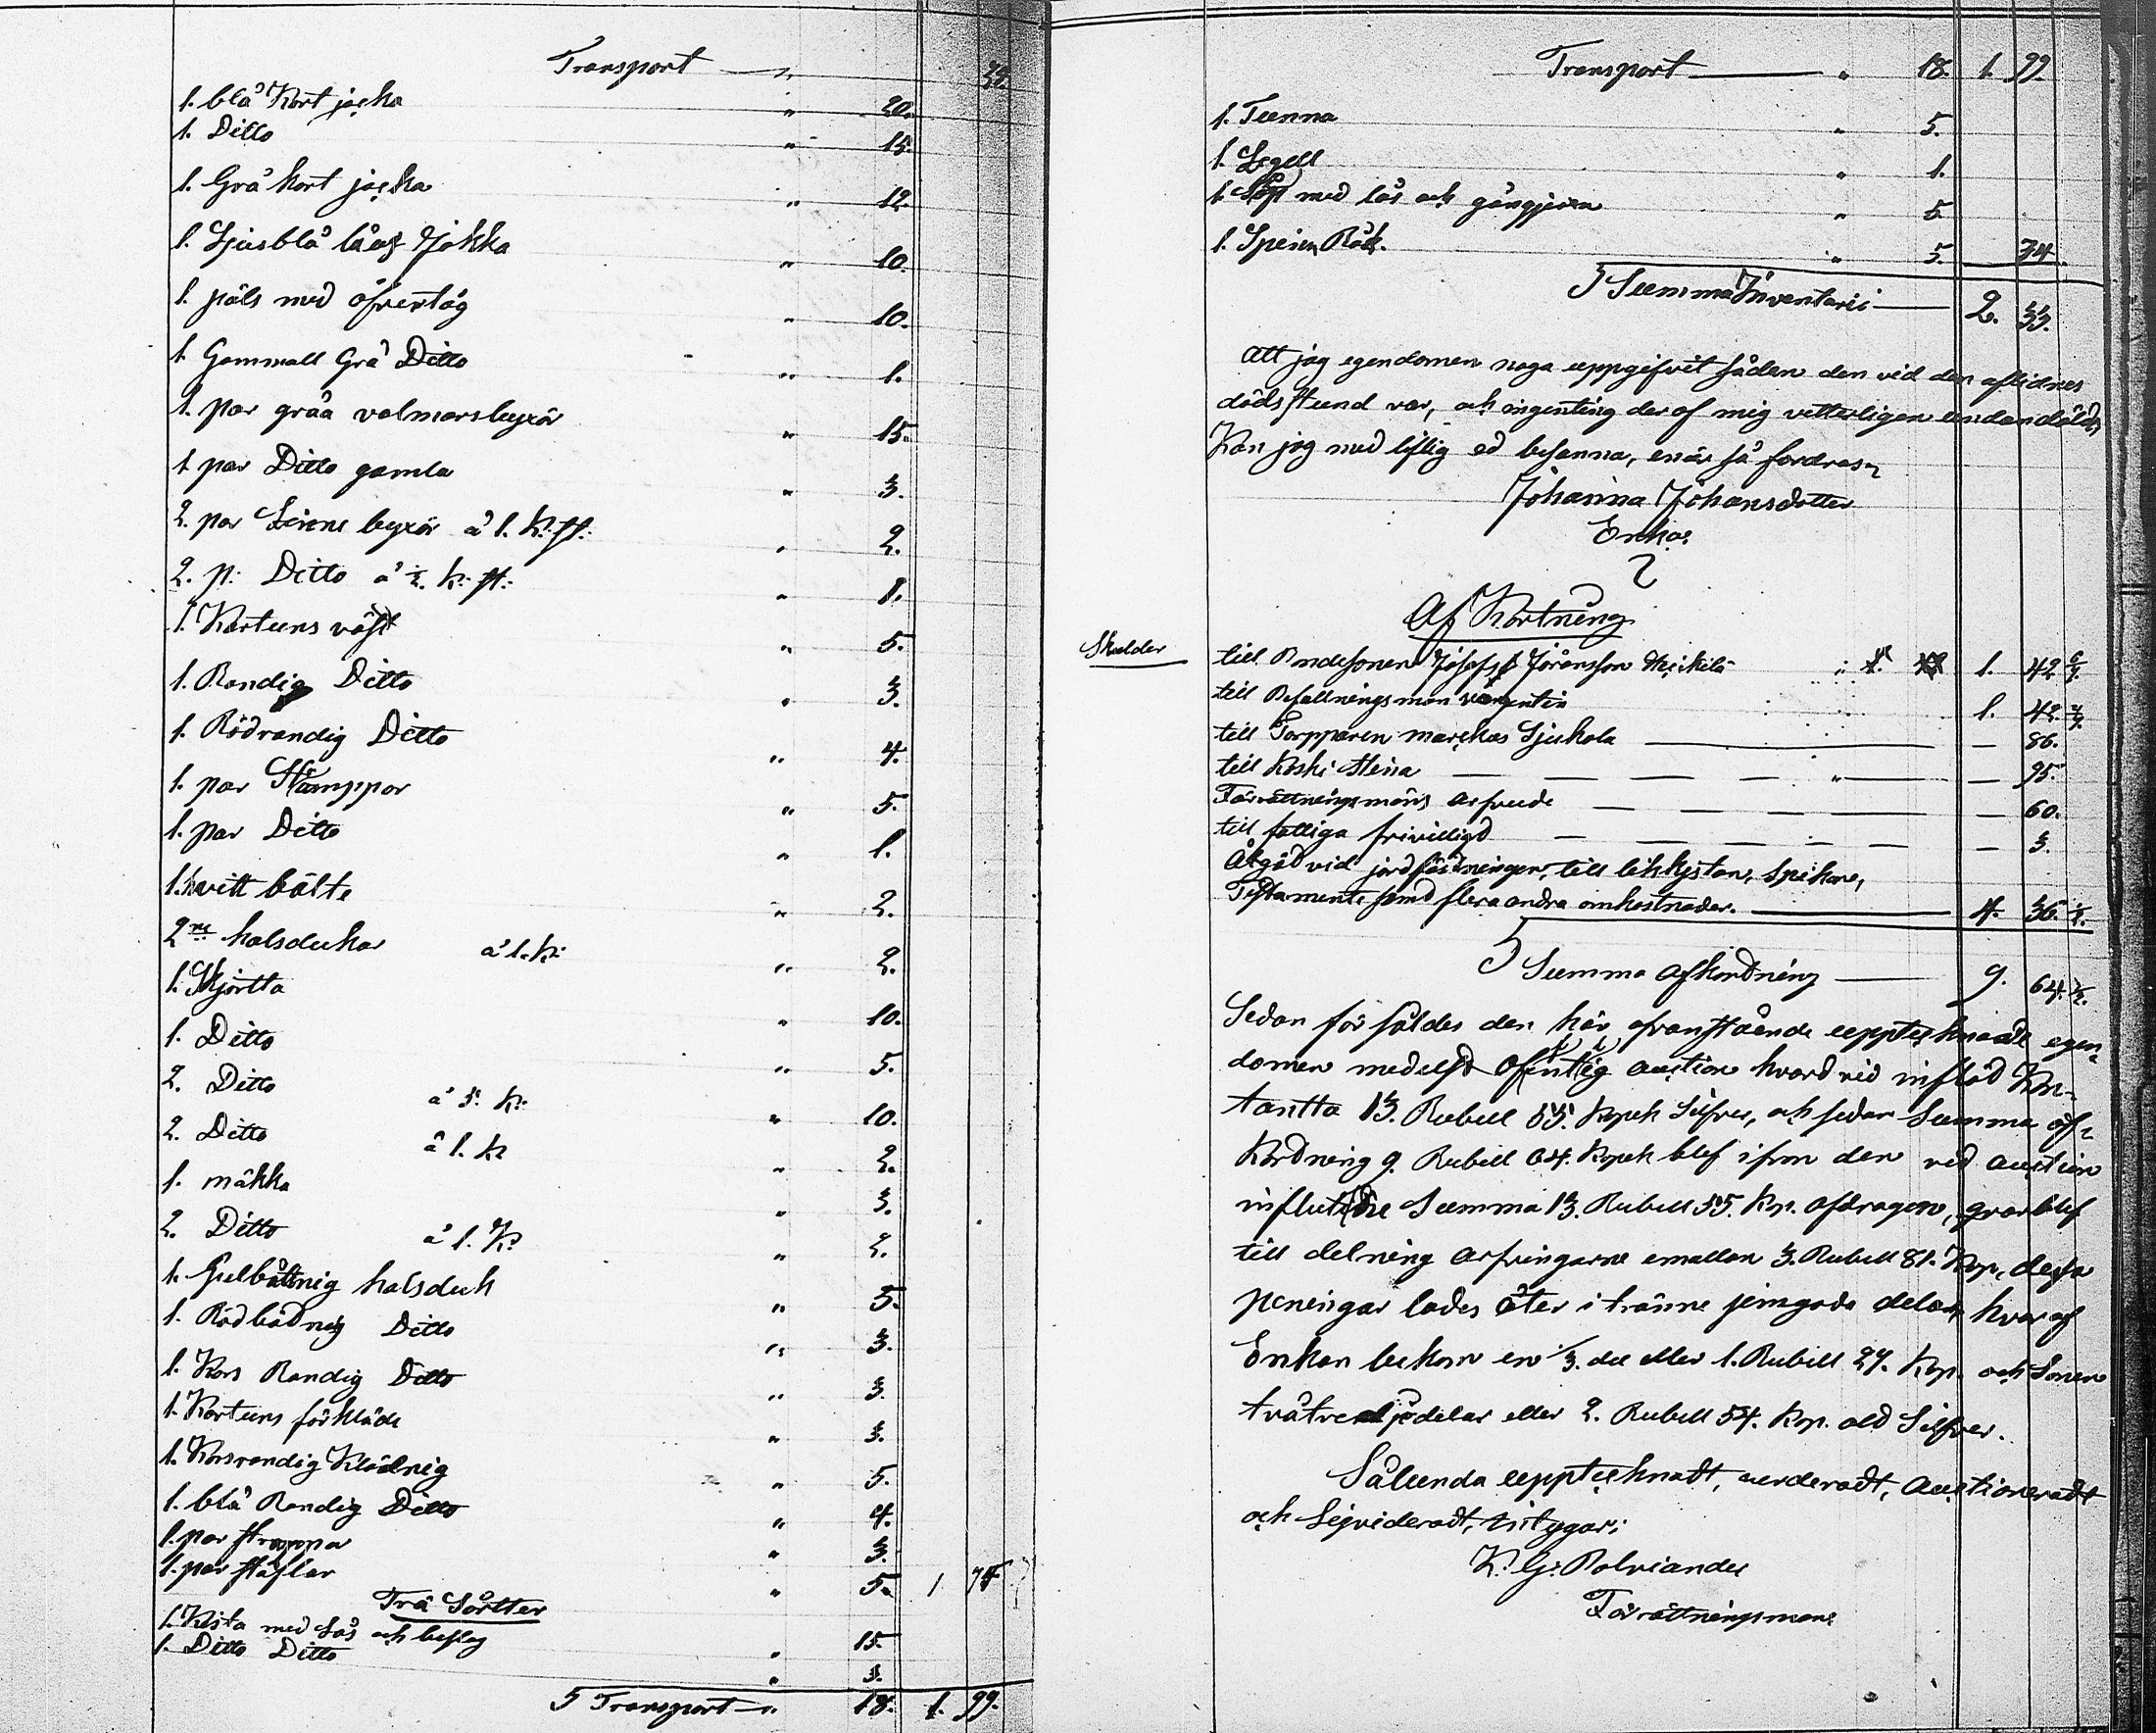 Transport — " 24.
1. blå Kort jacka " 20.
1. Ditto " 15.
1. Grå kort jacka " 12.
1. Ljusblå lång Jakka " 10.
1. päls med öfvertåg " 10.
1. Gammall Grå Ditto " 1.
1. par gråa valmarsbyxor " 15.
1. par Ditto gamla " 3.
2. par Linne byxor á 1. K: st: " 2.
2. p: Ditto á ½. k: st: " 1.
1. Kartuns väst " 5.
1. Randig Ditto " 3.
1. Rödrandig Ditto " 4.
1. par Stamppor " 5.
1. par Ditto " 1.
1. hvitt bälte " 2.
2ne halsdukar á 1. k: " 2.
1. Skjortta " 10.
1. Ditto " 5.
2. Ditto á 5. K: " 10.
2. Ditto á 1. K " 2.
1. mäkko " 3.
2. Ditto á 1. K: " 2.
1. Gulbåttnig halsduk " 5.
1. Rödbådnig Ditto " 3.
1. Kors Randig Ditto " 3.
1. Kartuns förkläde " 3.
1. Korsrandig Klädnig " 5.
1. blå Randig Ditto " 4.
1. par " 3.
1. par stöflar " 5. 1 75
Trä Sortter
1. Kista med Lås och beslag " 15.
1. Ditto Ditto " 3.
S Transport — " 18. 1. 99.
Transport — " 18. 1. 99
1. Tunna " 5.
1. Legell " 1.
1. med lås och gångjern " 5.
1. Råck. " 5. 34.
S Summa Inventarii — 2. 33.
Att jag egendomen noga uppgifvit sådan den vid den aflidnes
dödsstund var, och ingenting deraf mig vetterligen undandöldt,
Kan jag med liflig ed besanna, enär så fordras
Johanna Johansdotter
Enka
Af Kortning
Skulder
till Bondesonen Josef Jöransson 1. 42 6/7.
till Befallningsman 1. 42 6/7
till Torpparen marckus Ljukola — 86.
till Koski Stina — " — 95.
Förrättningsmäns arfvude — 60.
till fattiga frivilligd — 3.
Åtgåd vid jordfästningen, till likkistan, Spikare,
Testamente samd flera andra omkostnader. — 4. 36 ½.
S Summa afkordning — 9. 64. ½.
Sedan för såldes den här ofvanstående upptecknade egen-
domen medelst Ofentlig auction hvard vid inflöd Kon-
tantta 13. Rubell 55. Kopek Silfver, och sedan Summa af-
Kordning 9. Rubell 64. Kopek blef ifron den ved auction
influtidne Summa 13. Rubell 55. Kop. afdragen, qvarblef
till delning arfvingarne emallan 3. Rubell 81. Kop, dessa
peningar lades åter i tränne jemgoda delar, hvaraf
Enkan bekom en 1/3. del eller 1. Rubell 27. Kop. och Sonen
tvåtredjedelar eller 2. Rubell 54. Kop. ald Silfver.
Sålunda upptecknadt, verderadt, Auctioneradt
och Liqvideradt, intygar;
K. G: Polviander
Förrättningsman